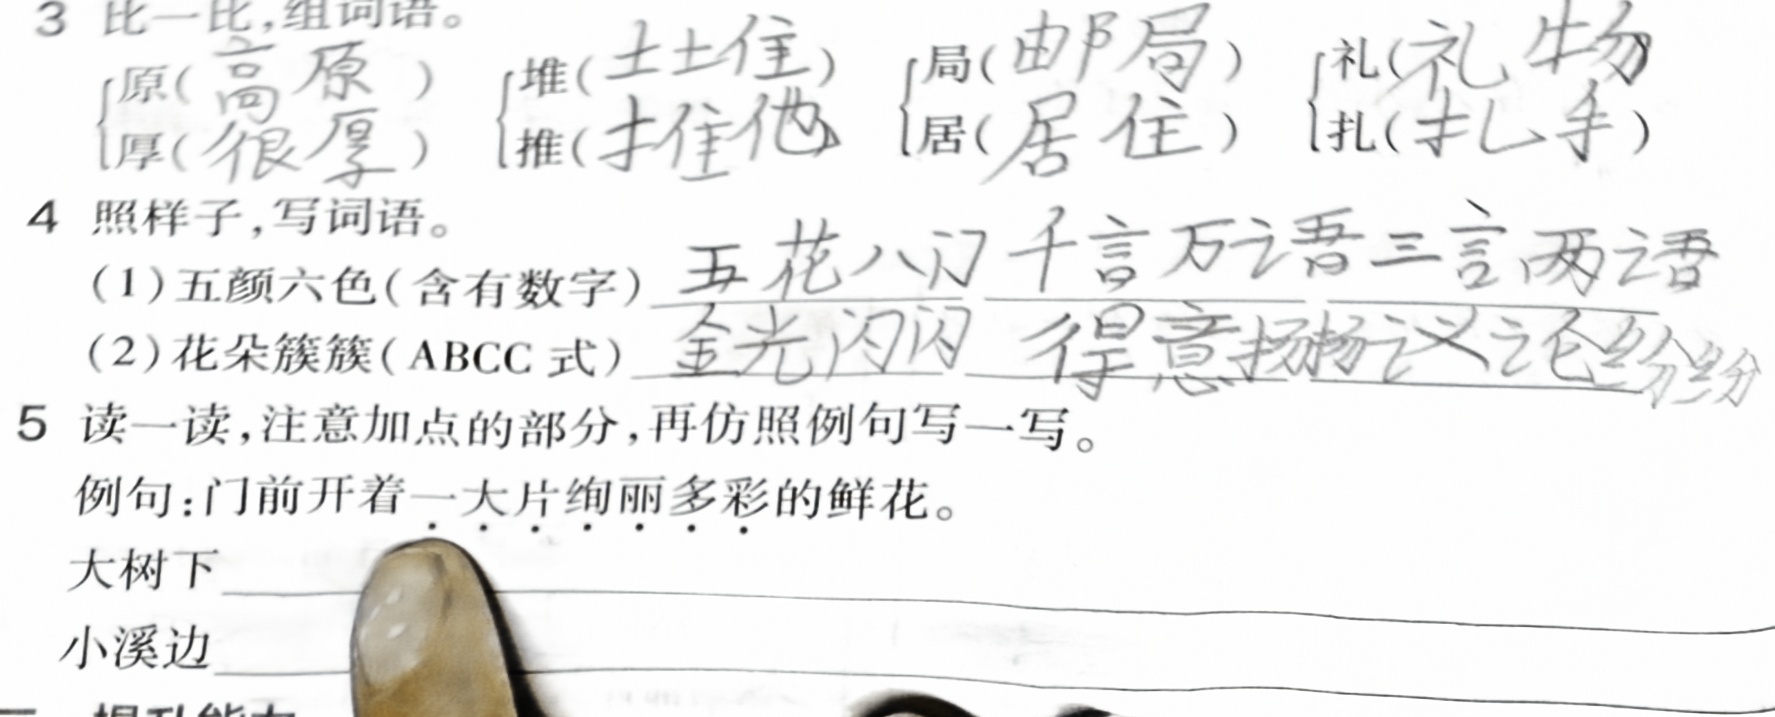 3 比一比,组词语。
原(高原) 堆(土堆) 局(邮局) 礼(礼物)
厚(很厚) 推(推他) 居(居住) 扎(扎手)
4 照样子,写词语。
(1)五颜六色(含有数字) 五花八门 千言万语 三言两语
(2)花朵簇簇(ABCC 式) 金光闪闪 得意扬扬 议论纷纷
5 读一读,注意加点的部分,再仿照例句写一写。
例句:门前开着一大片绚丽多彩的鲜花。
大树下
小溪边